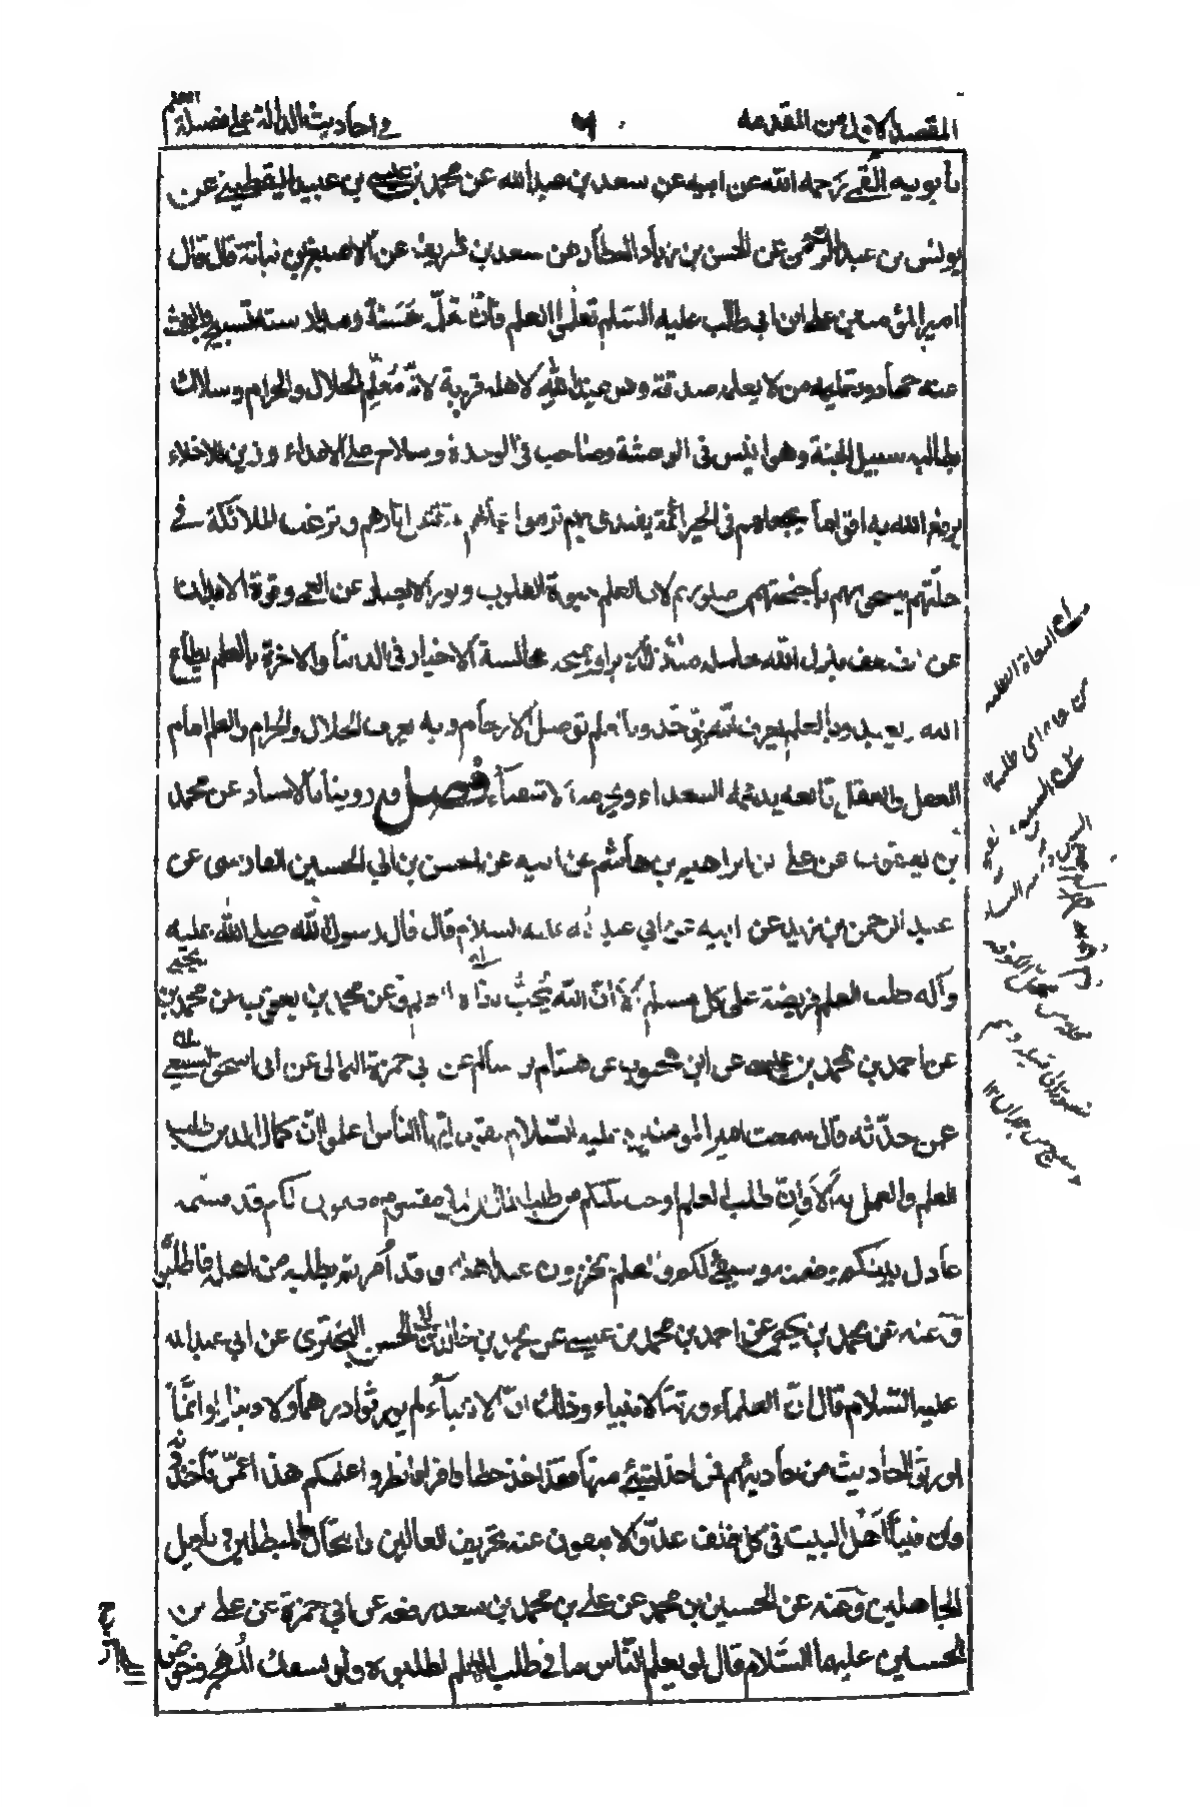 المقصد الاول من المقدمه
في احاديث الدالة على فضيلة
بابويه القمي رحمه الله عن ابيه عن سعد بن عبد الله عن محمد بن عيسى بن عبيد اليقطيني عن
يونس بن عبد الرحمن عن الحسن بن زياد العطار عن سعد بن طريف عن الاصبغ بن نباتة قال قال
امير المؤمنين علي ابن ابي طالب عليه السلم تعلموا العلم فان تعلّمه حَسَنة ومدارسته تسبيح والبحث
عنه جهاد وتعليمه من لا يعلمه صدقة وهو عند الله لاهله قربة لانّه مَعالم الحلال والحرام وسالك
بطالبه سبيل الجنة وهو انيس فى الوحشة وصاحب فى الوحدة وسلاح على الاعداء وزين الاخلاء
يرفع الله به اقواما يجعلهم فى الخير ائمة يقتدى بهم ترمق اعمالهم وتقتبس اثارهم وترغب الملائكة في
خلّتهم يمسحونهم باجنحتهم فى صلوتهم لان العلم حيوة القلوب ونور الابصار عن العمى وقوة الابدان
عن الضعف ينزل الله حامله منازل الابرار ويمنحه مجالسة الاخيار فى الدنيا والاخرة بالعلم يطاع
الله ويعبد وبالعلم يعرف الله ويوحّد وبالعلم توصل الارحام وبه يعرف الحلال والحرام والعلم امام
العمل والعقل تابعه يلهمه السعداء ويحرمه الاشقياء فصل وروينا بالاسناد عن محمد
بن يعقوب عن على بن ابراهيم بن هاشم عن ابيه عن الحسن بن ابي الحسين الفارسى عن
عبد الرحمن بن زيد عن ابيه عن ابي عبد الله عليه السلام قال قال رسول الله صلى الله عليه
وآله طلب العلم فريضة على كل مسلم الا انّ الله يُحِبُّ بغاة العلم وعن محمد بن يعقوب عن محمد بن يحيى
عن احمد بن محمد بن عيسى عن ابن محبوب عن هشام بن سالم عن ابي حمزة الثمالى عن ابى اسحق السبيعي
عمن حدّثه قال سمعت امير المؤمنين عليه السّلام يقول ايّها الناس اعلموا انّ كمال الدين طلب
العلم والعمل به اَلا وانّ طلب العلم اوجب عليكم من طلب المال ان المال مقسوم مضمون لكم قد قسمه
عادل بينكم وضمنه وسيفي لكم والعلم مخزون عند اهله وقد أُمرتم بطلبه من اهله فاطلبوه
وَعنه عن محمد بن يحيى عن احمد بن محمد بن عيسى عن محمد بن خالد عن ابي البختري عن ابي عبد الله
عليه السّلام قال انّ العلماء ورثة الانبياء وذلك انّ الانبياء لم يورثوا درهما ولا دينارا وانّما
اورثوا احاديث من احاديثهم فمن اخذ بشيء منها فقد اخذ حظا وافرا فانظروا علمكم هذا عمّن تأخذونه
فان فينا اَهْل البيت فى كل خلف عدولا ينفون عنه تحريف الغالين وانتحال المبطلين وتأويل
الجاهلين وَعنه عن الحسين بن محمد عن علي بن محمد بن سعد رفعه عن ابي حمزة عن على بن
الحسين عليهما السّلام قال لو يعلم النّاس ما فى طلب العلم لطلبوه ولو بسفك المُهَج وخوض